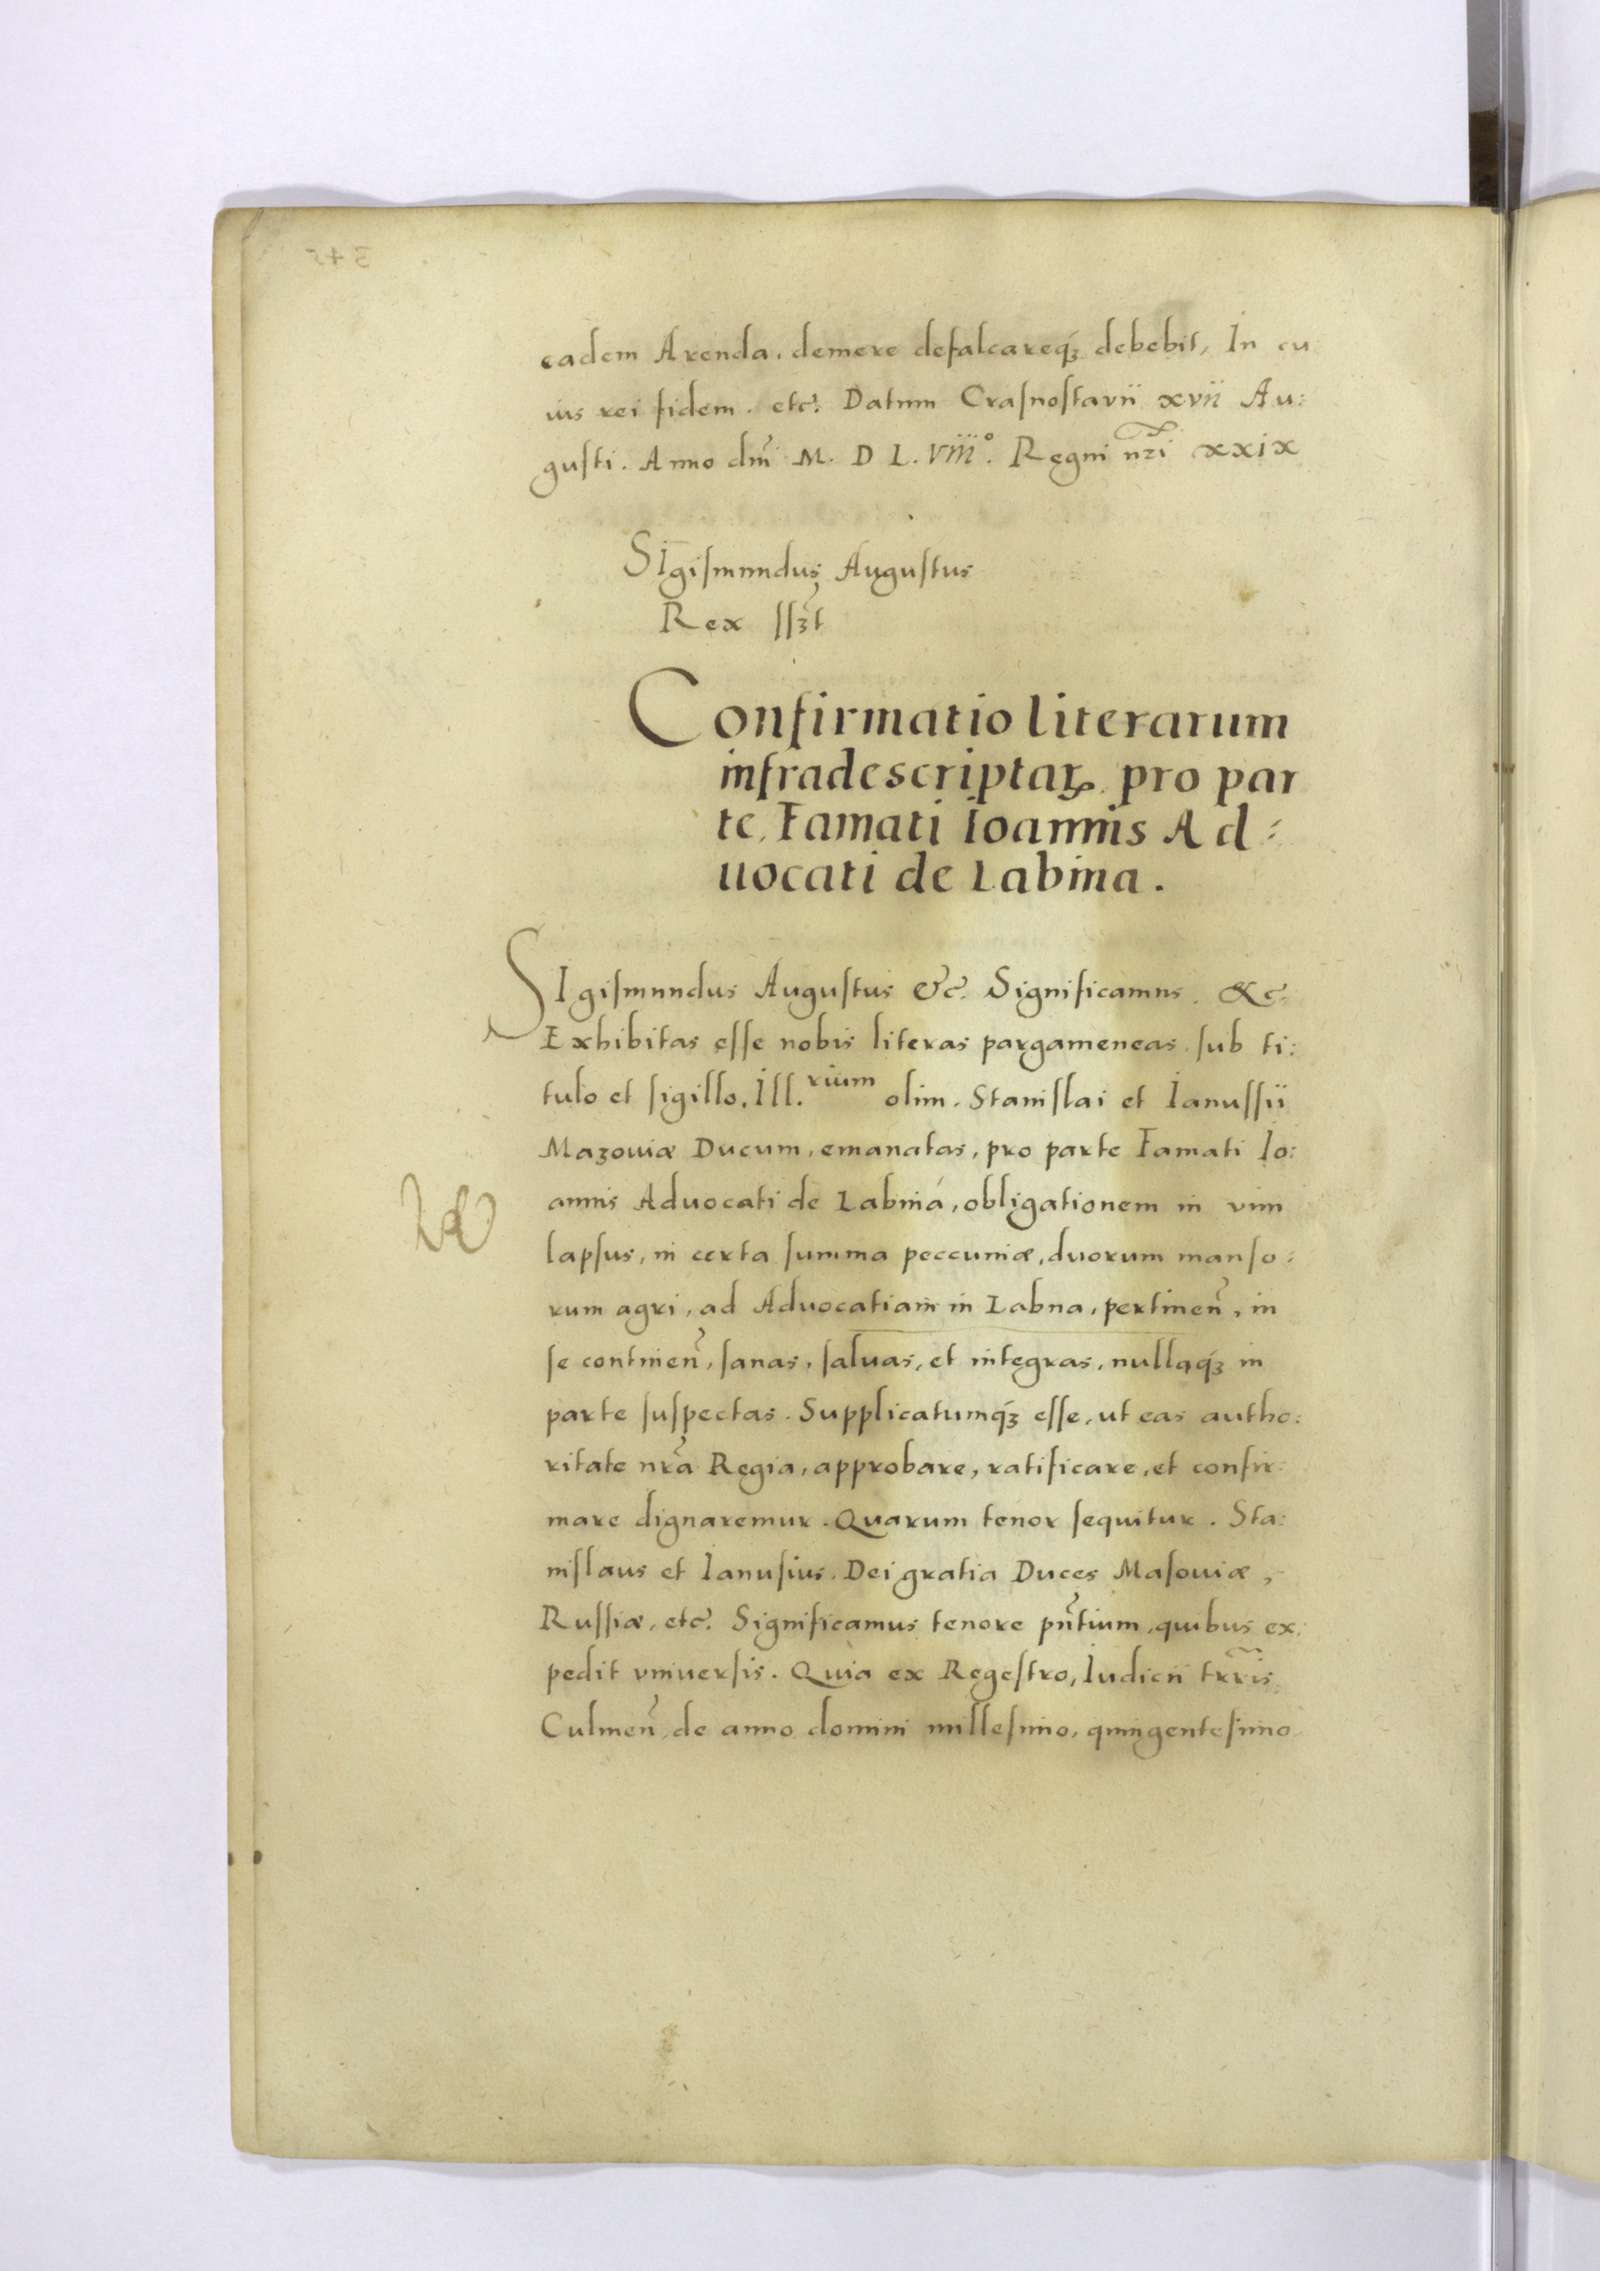 eadem Arenda, demere defalcareqꝫ debebit, In cu
ius rei fidem. etc. Datum Crasnostavii xvii Au:
gusti. Anno dñi M. D L. viii°. Regni nr̃i xxix
SIgismundus Augustus
Rex sszt
Confirmatio literarum
infradescriptaꝝ pro par
te, Famati Ioannis Ad:
uocati de Labina.
SIgismundus Augustus &c. Significamus. &c.
Exhibitas esse nobis literas pargameneas sub ti:
tulo et sigillo, Ill.rium olim. Stanislai et Ianussii
Mazouiæ Ducum, emanatas, pro parte Famati Io:
annis Aduocati de Labiná, obligationem in vim
lapsus, in certa summa peccuniæ, duorum manso:
rum agri, ad Aduocatiam in Labna, pertineñ, in
se contineñ, sanas, saluas, et integras, nullaqꝫ in
parte suspectas. Supplicatumqꝫ esse, ut eas autho:
ritate nr̃a Regia, approbare, ratificare, et confir:
mare dignaremur. Quarum tenor sequitur. Sta:
nislaus et Ianusius. Dei gratia Duces Masouiæ,
Russiæ, etc. Significamus tenore pñtium, quibus ex:
pedit vniuersis. Quia ex Regestro, Iudicii trr̃is
Culmeñ, de anno domini millesimo, quingentesimo